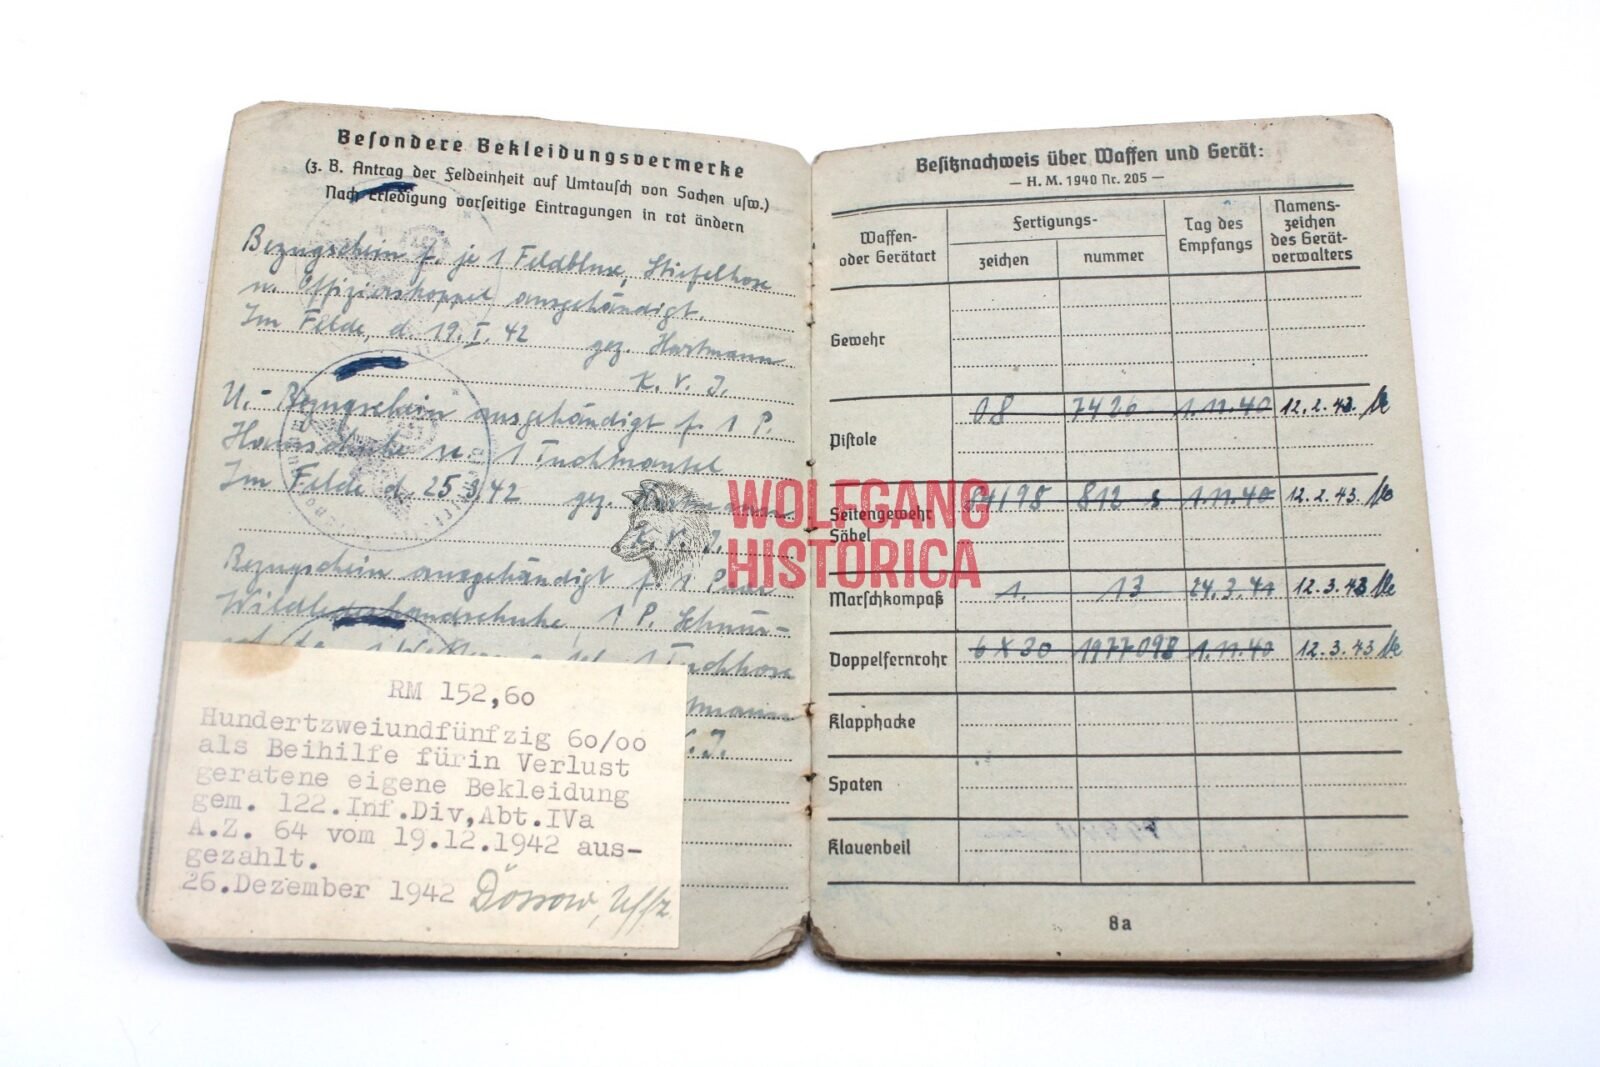 Besondere Bekleidungsvermerke
(z. B. Antrag der Feldeinheit auf Umtausch von Sachen usw.)
Nach Erledigung vorseitige Eintragungen in rot ändern
Bezugschein f. je 1 Feldbluse, Stiefelhose
u. Offizierskoppel ausgehändigt.
Im Felde, d. 19. I. 42 gez. Hartmann
K. V. I.
U.- Bezugschein ausgehändigt f. 1 P.
Handschuhe u. 1 Tuchmantel
Im Felde d. 25.3.42 gez.
K. V. I.
Bezugschein ausgehändigt f. 1 Paar
Wildlederhandschuhe, 1 P. Schnür-
1 Tuchhose
RM 152,60
Hundertzweiundfünfzig 60/00
als Beihilfe fürin Verlust
geratene eigene Bekleidung
gem. 122.Inf.Div,Abt.IVa
A.Z. 64 vom 19.12.1942 aus-
gezahlt.
26.Dezember 1942 Dössow, Uffz
Besitznachweis über Waffen und Gerät:
— H. M. 1940 Nr. 205 —
Waffen-
oder Gerätart
Fertigungs-
zeichen
nummer
Tag des
Empfangs
Namens-
zeichen
des Gerät-
verwalters
Gewehr
08 7426 1.11.40 12.2.43.
Pistole
84/98 812 s 1.11.40 12.2.43.
Seitengewehr
Säbel
Marschkompaß 1. 13 24.3.41 12.3.43
Doppelfernrohr 6 X 30 1977098 1.11.40 12.3.43
Klapphacke
Spaten
Klauenbeil
8a
WOLFGANG
HISTORICA